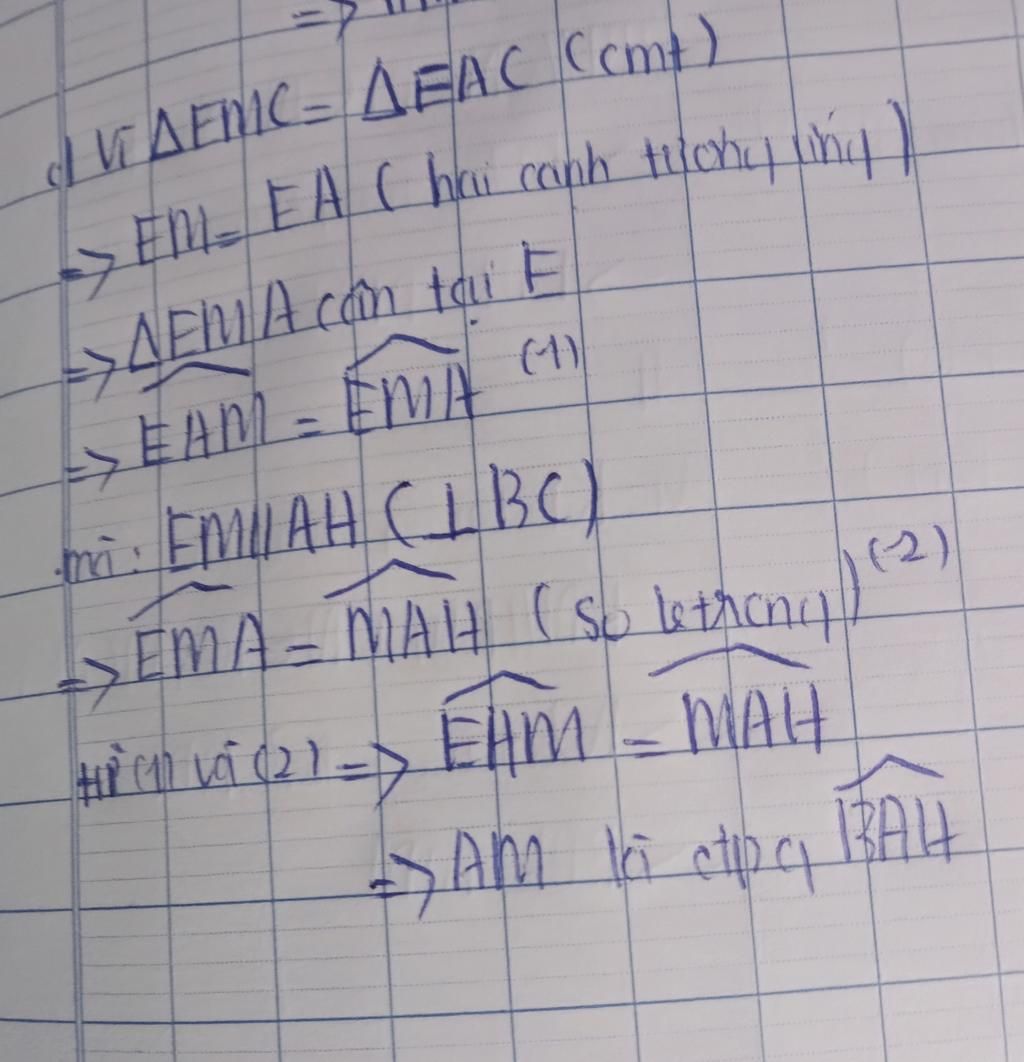 =>
d) Vì ΔEMC = ΔEAC (cmt)
=> EM = EA (hai cạnh tương ứng)
=> ΔEMA cân tại E
=> \widehat{EAM} = \widehat{EMA} (1)
mà: EM//AH (⊥BC)
=> \widehat{EMA} = \widehat{MAH} (so le trong) (2)
từ (1) và (2) => \widehat{EAM} = \widehat{MAH}
=> AM là đtpg \widehat{BAH}